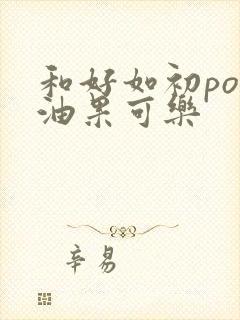 和好如初po
油果可樂
辛易